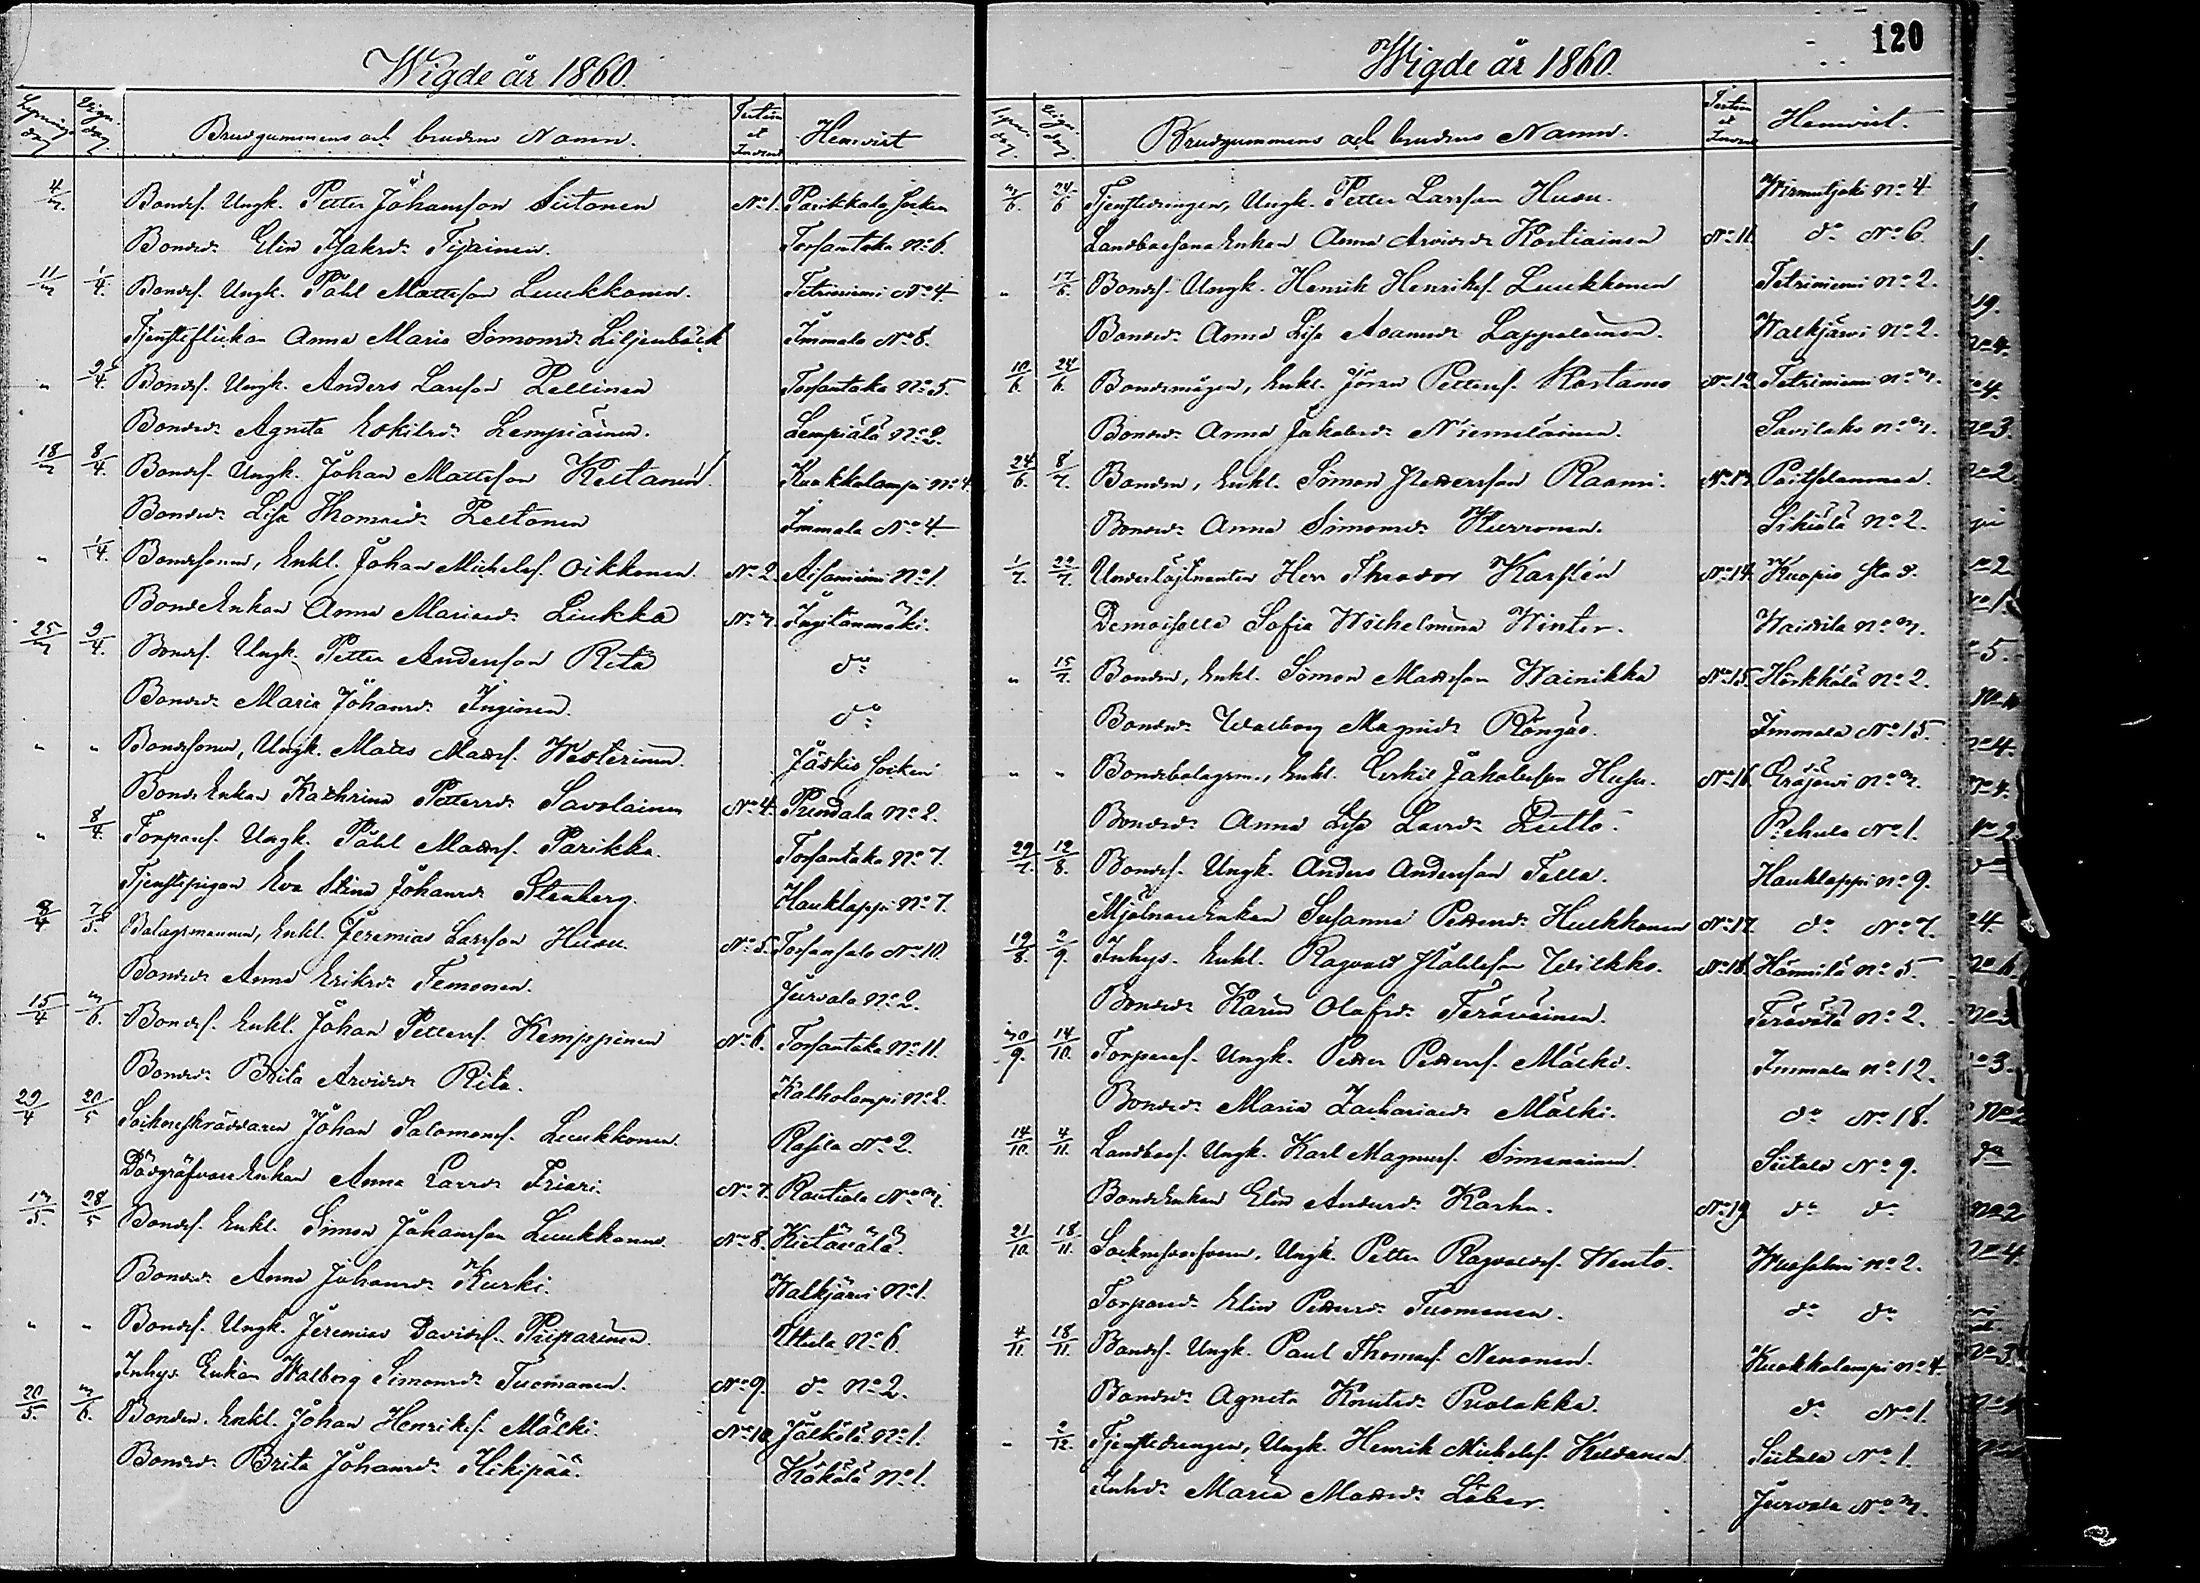 Wigde år 1860.
Lysnings dag Vigs. dag Brudgummens och brudens Namn. Testim et Inventar Hemvist
4/3. Bondes. Ungk. Petter Johansson Siitonen No 1. Parikkala Socken
Bonded. Elin Isaksd. Tijainen. Torsantaka No 6.
11/3 1/4. Bondes. Ungk. Påhl Mattsson Luukkonen. Tetriniemi No 4
Tjensteflickan Anna Maria Simonsd. Liljenbäck Immala No 8.
" 9/4. Bondes. Ungk. Anders Larsson Pellinen Torsantaka No 5.
Bonded. Agneta Eskilsd. Lempiäinen. Lempiälä No 2.
18/3 8/4. Bondes. Ungk. Johan Mattsson Kettanen Kuokkalampi No 4.
Bonded. Lisa Thomasd. Peltonen Immala No 4.
" 1/4. Bondesonen, Enkl. Johan Michelss. Oikkonen. No 2. Aisaniemi No 1.
BondeEnkan Anna Mariasd. Liukka No 3. Ingilänmäki.
25/3 9/4. Bondes. Ungk. Petter Andersson Rita do
Bonded. Maria Johansd. Inginen. do
" " Bondesonen, Ungk. Matts Mattss. Westerinen. Jäskis Socken
BondeEnkan Kathrina Pettersd. Savolainen No 4. Pundala No 2.
" 8/4. Torpares. Ungk. Påhl Mattss. Parikka. Torsantaka No 7.
Tjenstepigan Eva Stina Johansd. Stenberg. Hauklappi No 7.
8/4 7/5. Bolagsmannen, Enkl. Jeremias Larsson Husu No 5. Torsansalo No 10.
Bonded. Anna Eriksd. Temonen. Jurvala No 2.
15/4 3/6. Bondes. Enkl. Johan Petterss. Kemppinen No 6. Torsantaka No 11.
Bonded. Brita Arvidsd. Rita. Kalholampi No 2.
29/4 20/5 Sockneskräddaren Johan Salomonss. Luukkonen. Rasila No 2.
DödgräfvareEnkan Anna Larsd. Friari. No 7. Rautiala No 3.
13/5. 28/5 Bondes. Enkl. Simon Johansson Luukkonen. No 8. Kietävälä.
Bonded. Anna Johansd. Kurki. Walkjärvi No 1.
" " Bondes. Ungk. Jeremias Davidss. Piiparinen. Uttula No 6.
Inhys Enkan Walborg Simonsd. Tuomanen. No 9. do No 2.
20/5. 3/6. Bonden. Enkl. Johan Henrikss. Mälki. No 10. Jälkölä No 1.
Bonded. Brita Johansd. Hikipää. Käkölä No 1.
120
Wigde år 1860.
Lysn. dag. Vigs. dag. Brudgummens och brudens Namn. Testim et Invent Hemvist.
3/6. 24/6 Tjenstedrengen, Ungk. Petter Larsson Husu. Wirmutjoki No 4
LandbosonsEnkan Anna Arvidsd. Kostiainen No 11. do No 6.
" 17/6. Bondes. Ungk. Henrik Henrikss. Luukkonen Tetriniemi No 2.
Bonded. Anna Lisa Adamsd. Lappalainen. Walkjärvi No 2.
10/6. 24/6. Bondemågen, Enkl. Jöran Petterss. Kostamo No 12. Tetriniemi No 3.
Bonded. Anna Jakobsd. Niemeläinen. Savilaks No 3.
24/6. 8/7. Bonden, Enkl. Simon Pettersson Raami. No 13. Poitsilanmaa.
Bonded. Anna Simonsd. Kurronen. Sikiälä No 2.
1/7. 22/7. Underlöjtnanten Herr Theodor Karstén No 14. Kuopio stad.
Demoiselle Sofia Wilhelmina Winter. Waittila No 3.
" 15/7. Bonden, Enkl. Simon Mattsson Wainikka No 15. Härkkälä No 2.
Bonded. Walborg Magnid. Röngäs. Immala No 15.
" " Bondebolagsm., Enkl. Eerkil Jakobsson Husu. No 16. Eräjärvi No 3.
Bonded. Anna Lisa Larsd. Putto. Rehula No 1.
29/7. 12/8. Bondes. Ungk. Anders Andersson Tella. Hauklappi No 9.
MjölnareEnkan Susanna Pettersd. Hulkkonen No 17. do No 7.
19/8. 2/9. Inhys. Enkl. Ragvald Påhlsson Wilkko. No 18. Hännilä No 5.
Bonded. Karin Olofsd. Teräväinen. Terävälä No 2.
30/9. 14/10. Torpares. Ungk. Petter Petterss. Mälki. Immala No 12.
Bonded. Maria Zachariasd. Mälki. do No 18.
14/10. 4/11. Landbos. Ungk. Karl Magnuss. Simonainen. Siitola No 9.
BondeEnkan Elin Andersd. Karhu. No 19 do do
21/10. 18/11. Ungk. Petter Ragvaldss. Wento. Wuosalmi No 2.
Torpared. Elin Pettersd. Tuomanen. do do
4/11. 18/11. Bondes. Ungk. Paul Thomass. Nenonen. Kuokkalampi No 4.
Bonded. Agneta Knutsd. Puolakka. do No 1.
" 2/12. Tjenstedrengen, Ungk. Henrik Michelss. Kuldanen. Siitola No 1.
Inhd. Maria Mattsd. Läber. Jurvala No 3.